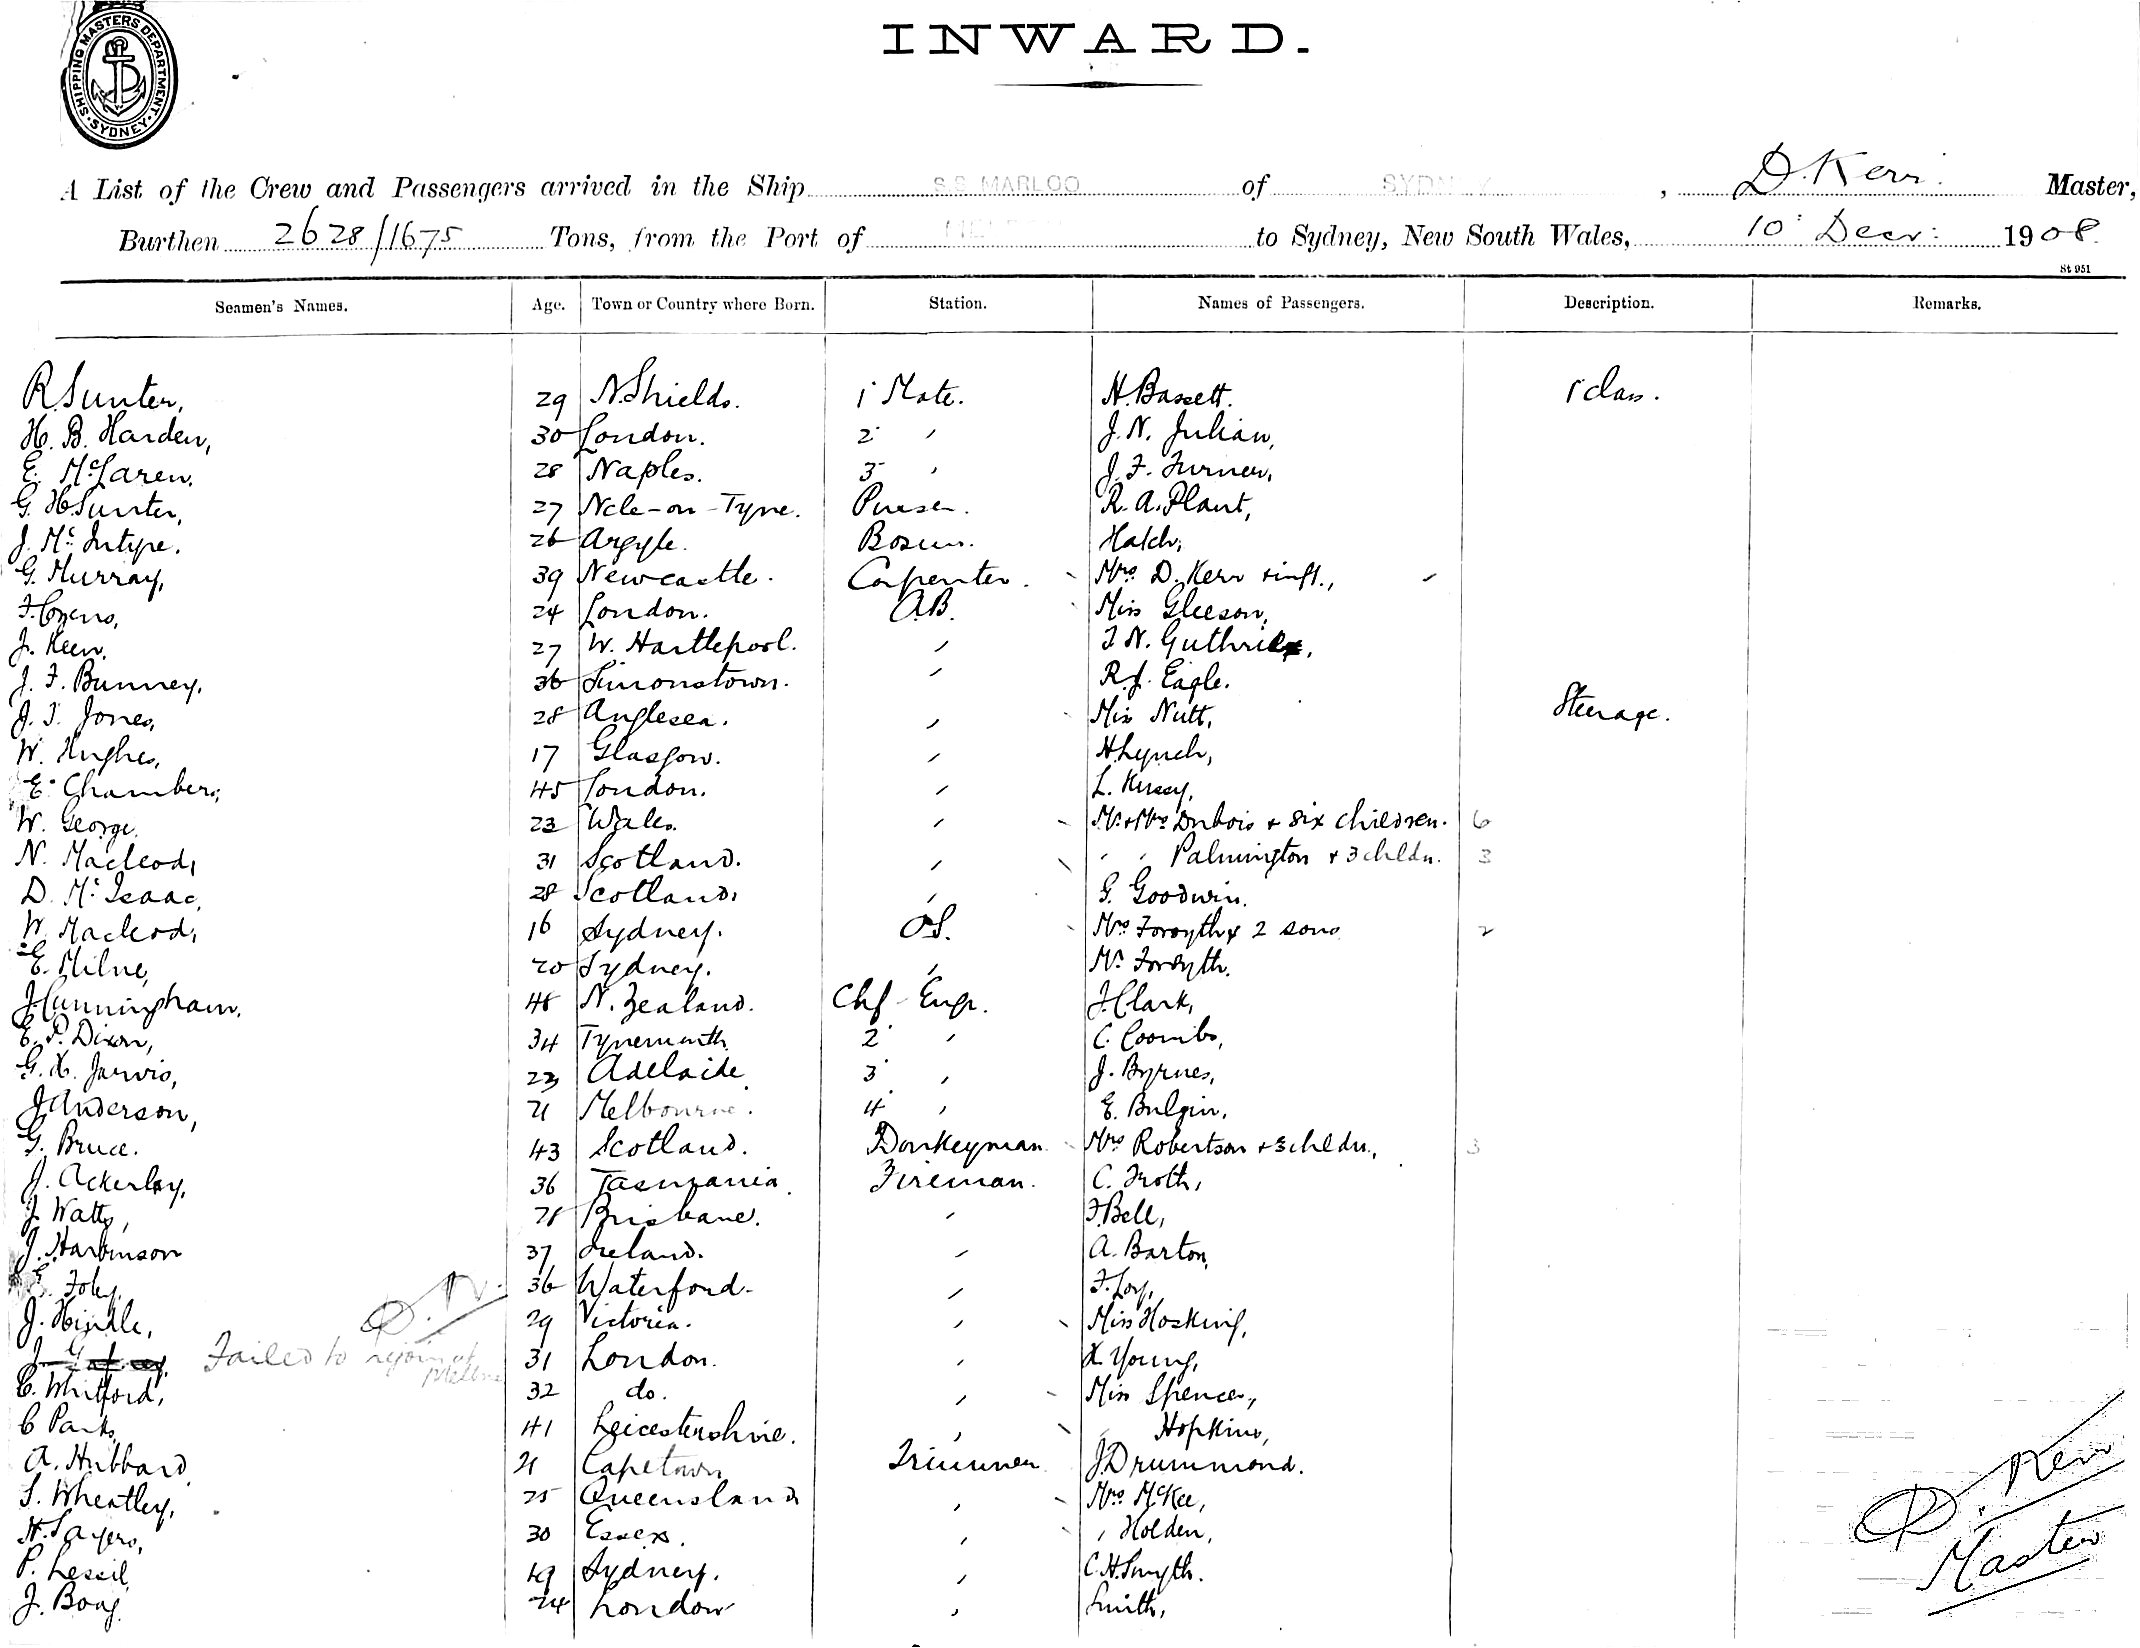 SHIPPING MASTERS DEPARTMENT. SYDNEY
INWARD.
A List of the Crew and Passengers arrived in the Ship S.S. MARLOO of SYDNEY, D. Kerr. Master,
Burthen 2628/1675 Tons, from the Port of to Sydney, New South Wales, 10 Decr: 1908.
St 951
Seamen's Names. Age. Town or Country where Born. Station. Names of Passengers. Description. Remarks.
R. Sunter, 29 N. Shields. 1 Mate. H. Bassett. 1 class.
H. B. Harden, 30 London. 2 " J. N. Julian,
E. McLaren, 28 Naples. 3 " J. F. Turner,
G. H Sunter, 27 Ncle-on-Tyne. Purser. R. A. Plant,
J. McIntype. 26 Argyle. Bosun. Hatch,
G. Murray, 39 Newcastle. Carpenter. Mrs D. Kerr + inft.,
24 London. A.B. Miss Gleeson,
J. Keen, 27 W. Hartlepool. " Guthrie,
J. F. Bunney, 36 Simonstown. " R. J. Eagle.
J. T. Jones, 28 Anglesea. " Miss Nutt, Steerage.
W. Hughes, 17 Glasgow. " H Lynch,
E. Chambers, 45 London. " L. Kersey,
W. George. 23 Wales. " Mr + Mrs Dubois + six children. 6
N. Macleod, 31 Scotland. " " " Palmington + 3 chldn. 3
D. McIsaac, 28 Scotland, " G. Goodwin.
W. Macleod, 16 Sydney. O.S. Mrs Forsyth + 2 sons 2
E. Milne, 20 Sydney. " Mr Forsyth.
J. Cunningham. 48 N. Zealand. Chf Engr. J. Clark,
E. P. Dixon, 34 Tynemouth 2 " C. Coombs,
G. H. Jarvis, 23 Adelaide 3 " J. Byrnes,
J Anderson, 21 Melbourne. 4 " E. Bulgin,
G. Bruce. 43 Scotland. Donkeyman. Mrs Robertson + 3 chldn., 3
J. Ackerley, 36 Tasmania. Fireman. C. Troth,
J. Watts, 28 Brisbane. " F. Bell,
J. Harbinson 37 Ireland. " A. Barton,
Foley. 36 Waterford. " F. Loy,
J. Hindle, 29 Victoria. " Miss Hosking,
Failed to rejoin at Melbne 31 London. " Young,
C. Whitford, 32 do. " Miss Spencer,
C Parks, 41 Leicestershire. " " Hopkins,
A. Hubbard 21 Capetown Trimmer. J. Drummond.
S. Wheatley, 25 Queensland " Mrs McKee,
H. Sayers, 30 Essex. " " Holden,
P. Lessil 19 Sydney. " C. H. Smyth.
J. Boag. 24 London " Smith,
D. Kerr
Master